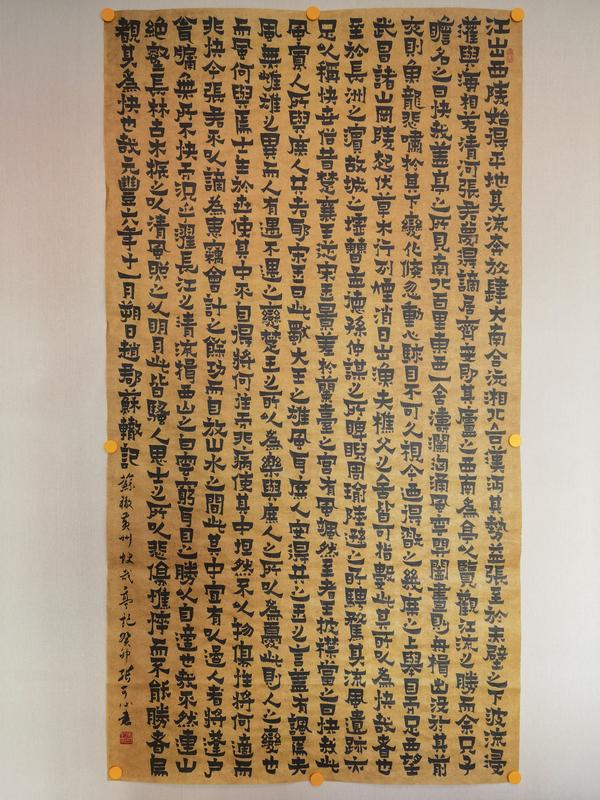 江出西陵始得平地其流奔放肆大南合沅湘北合漢沔其勢益張至於赤壁之下波流浸
灌與海相若清河張君夢得謫居齊安即其廬之西南為亭以覽觀江流之勝而余兄子
瞻名之曰快哉蓋亭之所見南北百里東西一舍濤瀾洶湧風雲開闔晝則舟楫出沒於其前
夜則魚龍悲嘯於其下變化倏忽動心駭目不可久視今迺得翫之幾席之上舉目而足西望
武昌諸山岡陵起伏草木行列煙消日出漁夫樵父之舍皆可指數此其所以為快哉者也
至於長洲之濱故城之墟曹孟德孫仲謀之所睥睨周瑜陸遜之所騁騖其流風遺跡亦
足以稱快世俗昔楚襄王從宋玉景差於蘭臺之宮有風颯然至者王披襟當之曰快哉此
風寡人所與庶人共者耶宋玉曰此獨大王之雄風耳庶人安得共之玉之言蓋有諷焉夫
風無雌雄之異而人有遇不遇之變楚王之所以為樂與庶人之所以為憂此則人之變也
而風何與焉士生於世使其中不自得將何往而非病使其中坦然不以物傷性將何適而
非快今張君不以謫為患竊會計之餘功而自放山水之間此其中宜有以過人者將蓬戶
甕牖無所不快而況乎濯長江之清流揖西山之白雲窮耳目之勝以自適也哉不然連山
絕壑長林古木振之以清風照之以明月此皆騷人思士之所以悲傷憔悴而不能勝者烏
覩其為快也哉元豐六年十一月朔日趙郡蘇轍記 蘇轍黃州快哉亭記癸卯可心書